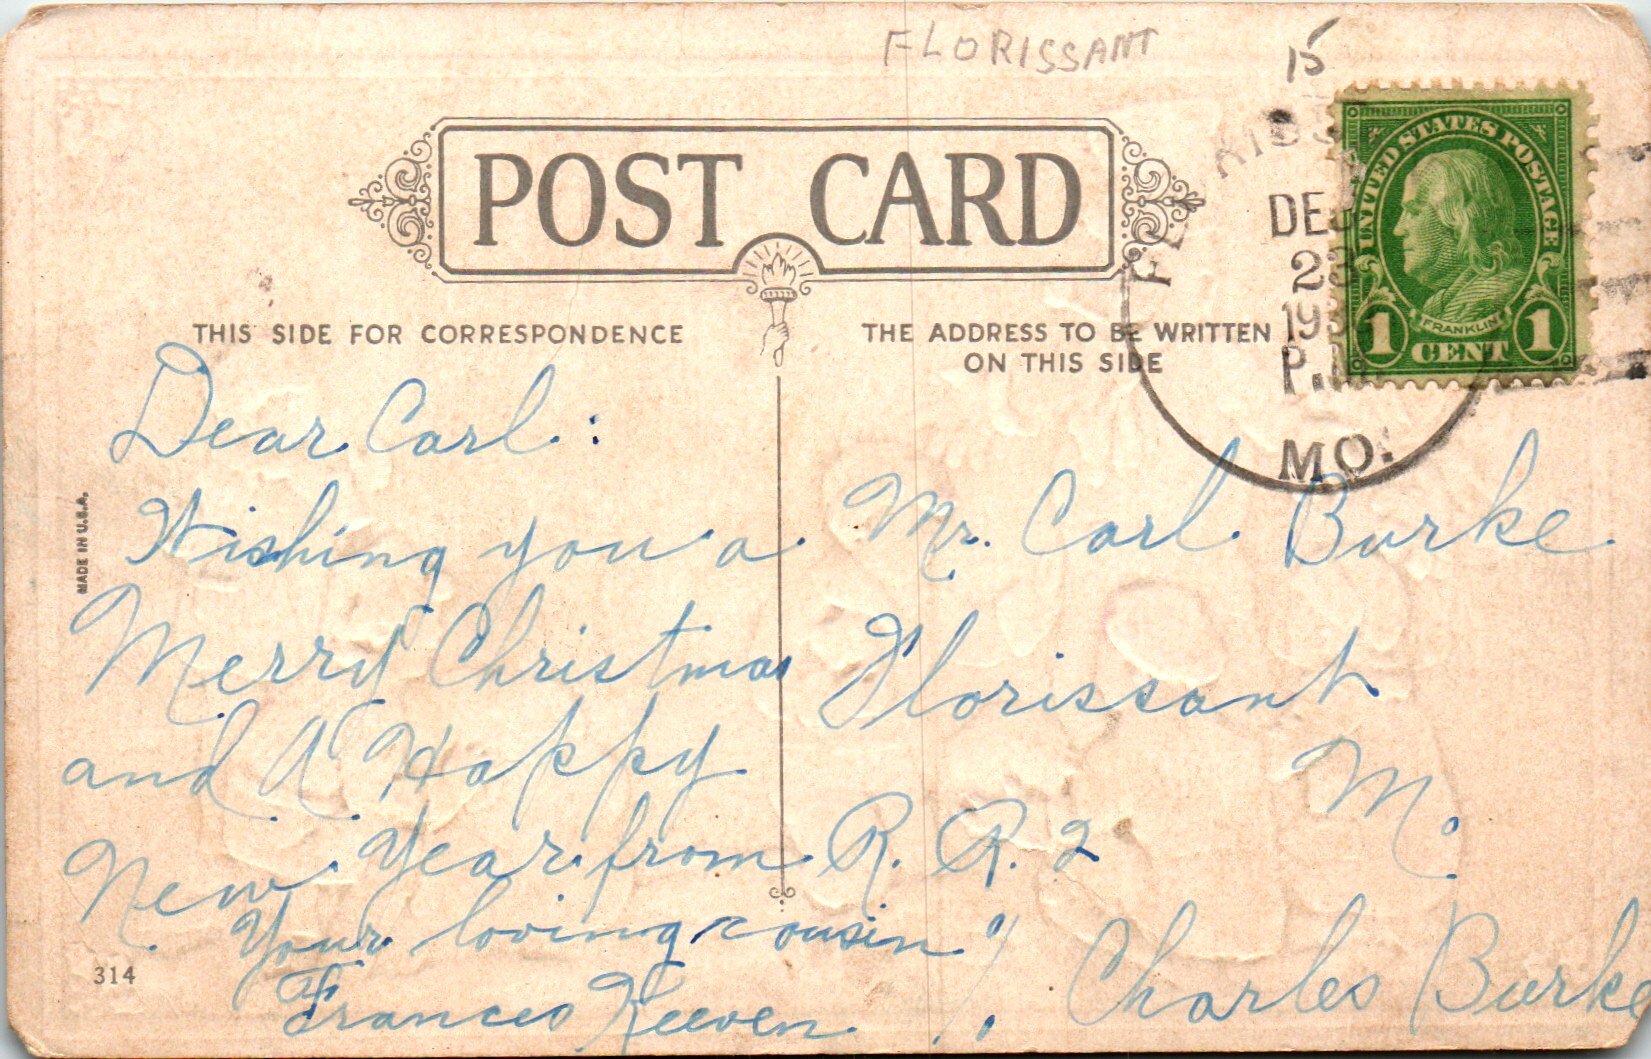 FLORISSANT
15
POST CARD
UNITED STATES POSTAGE
FRANKLIN
1 CENT 1
DEC
23
P.M.
MO.
THIS SIDE FOR CORRESPONDENCE
THE ADDRESS TO BE WRITTEN
ON THIS SIDE
MADE IN U.S.A.
Dear Carl:
Wishing you a
Merry Christmas
and A Happy
New Year from
Your loving cousin
Frances
314
Mr. Carl Burke
Florissant
M.
R. R. 2
%. Charles Burke